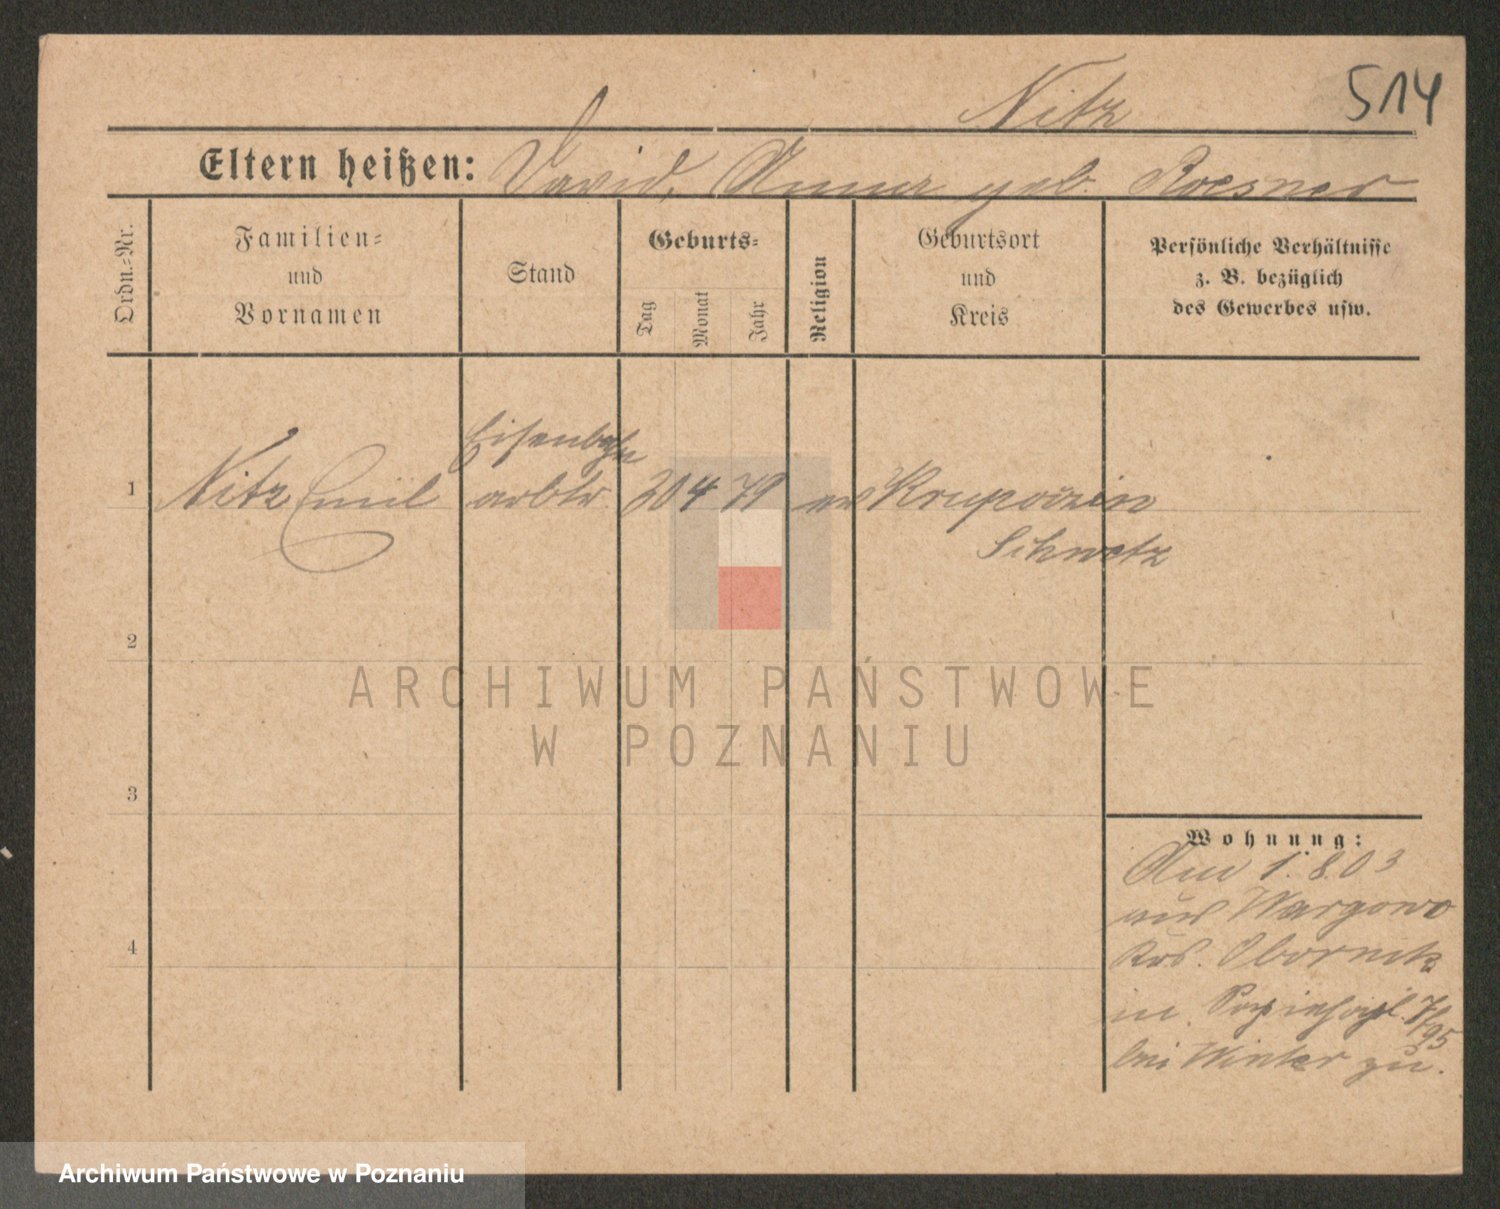 Nitz
514
Eltern heißen: David, Anna geb. Roesner
Ordn.-Nr.
Familien-
und
Vornamen
Stand
Geburts-
Tag
Monat
Jahr
Religion
Geburtsort
und
Kreis
Persönliche Verhältnisse
z. B. bezüglich
des Gewerbes usw.
Eisenbahn
1 Nitz Emil arbtr. 20 4 79 ev Krupoczin
Schwetz
2
ARCHIWUM PAŃSTWOWE
W POZNANIU
3
Wohnung:
Am 1.8.03
aus Wargowo
Krs. Obornik
4
in
bei Winter zu.
Archiwum Państwowe w Poznaniu